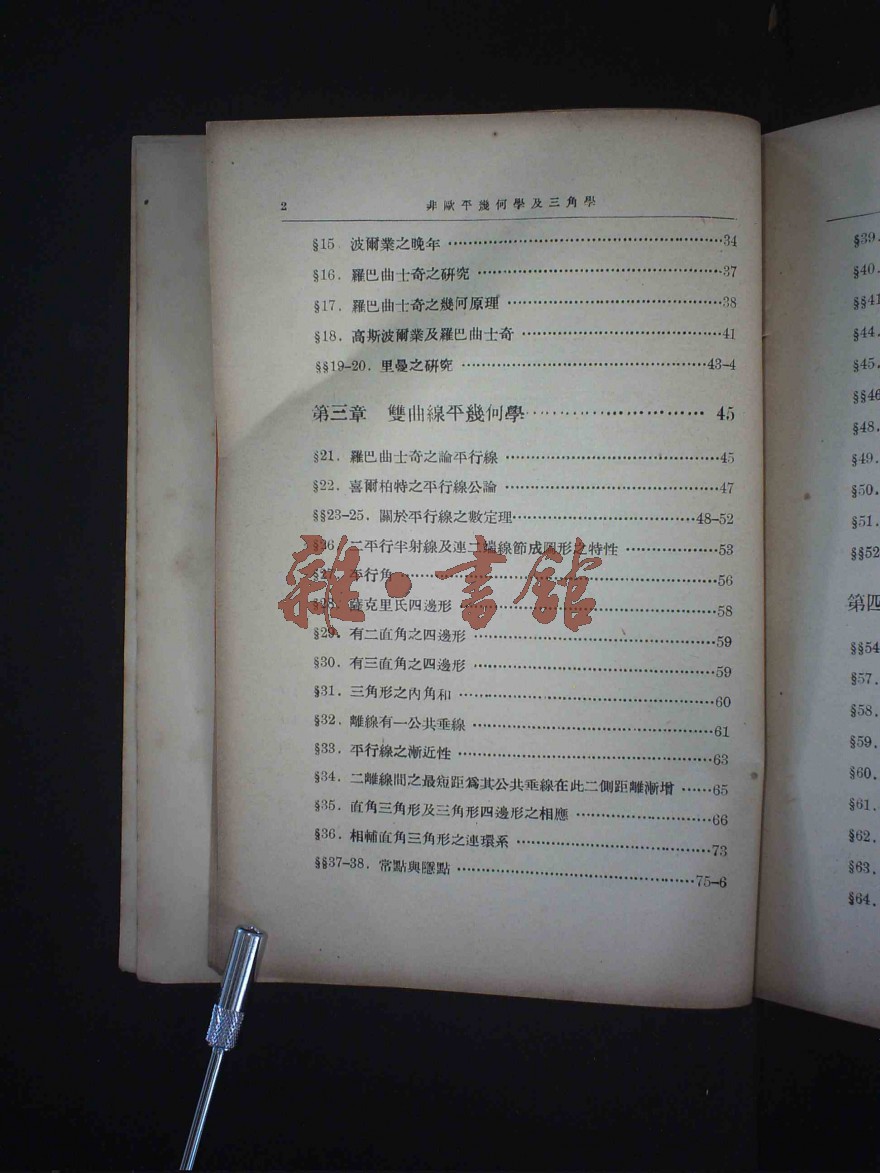 2 非歐平幾何學及三角學
§15. 波爾業之晚年 ……34
§16. 羅巴曲士奇之研究 ……37
§17. 羅巴曲士奇之幾何原理 ……38
§18. 高斯波爾業及羅巴曲士奇 ……41
§§19-20. 里曼之研究 ……43-4
第三章 雙曲線平幾何學…… 45
§21. 羅巴曲士奇之論平行線 ……45
§22. 喜爾柏特之平行線公論 ……47
§§23-25. 關於平行線之數定理……48-52
§26. 二平行半射線及連二端線節成圖形之特性 ……53
§27. 平行角 ……56
§28. 薩克里氏四邊形 ……58
§29. 有二直角之四邊形 ……59
§30. 有三直角之四邊形 ……59
§31. 三角形之內角和 ……60
§32. 離線有一公共垂線 ……61
§33. 平行線之漸近性 ……63
§34. 二離線間之最短距為其公共垂線在此二側距離漸增 ……65
§35. 直角三角形及三角形四邊形之相應 ……66
§36. 相輔直角三角形之連環系 ……73
§§37-38. 常點與隱點 ……75-6
雜·書館
§39.
§40.
§§41
§44.
§45.
§§46
§48.
§49.
§50.
§51.
§§52
第四
§§54
§57.
§58.
§59.
§60.
§61.
§62.
§63.
§64.